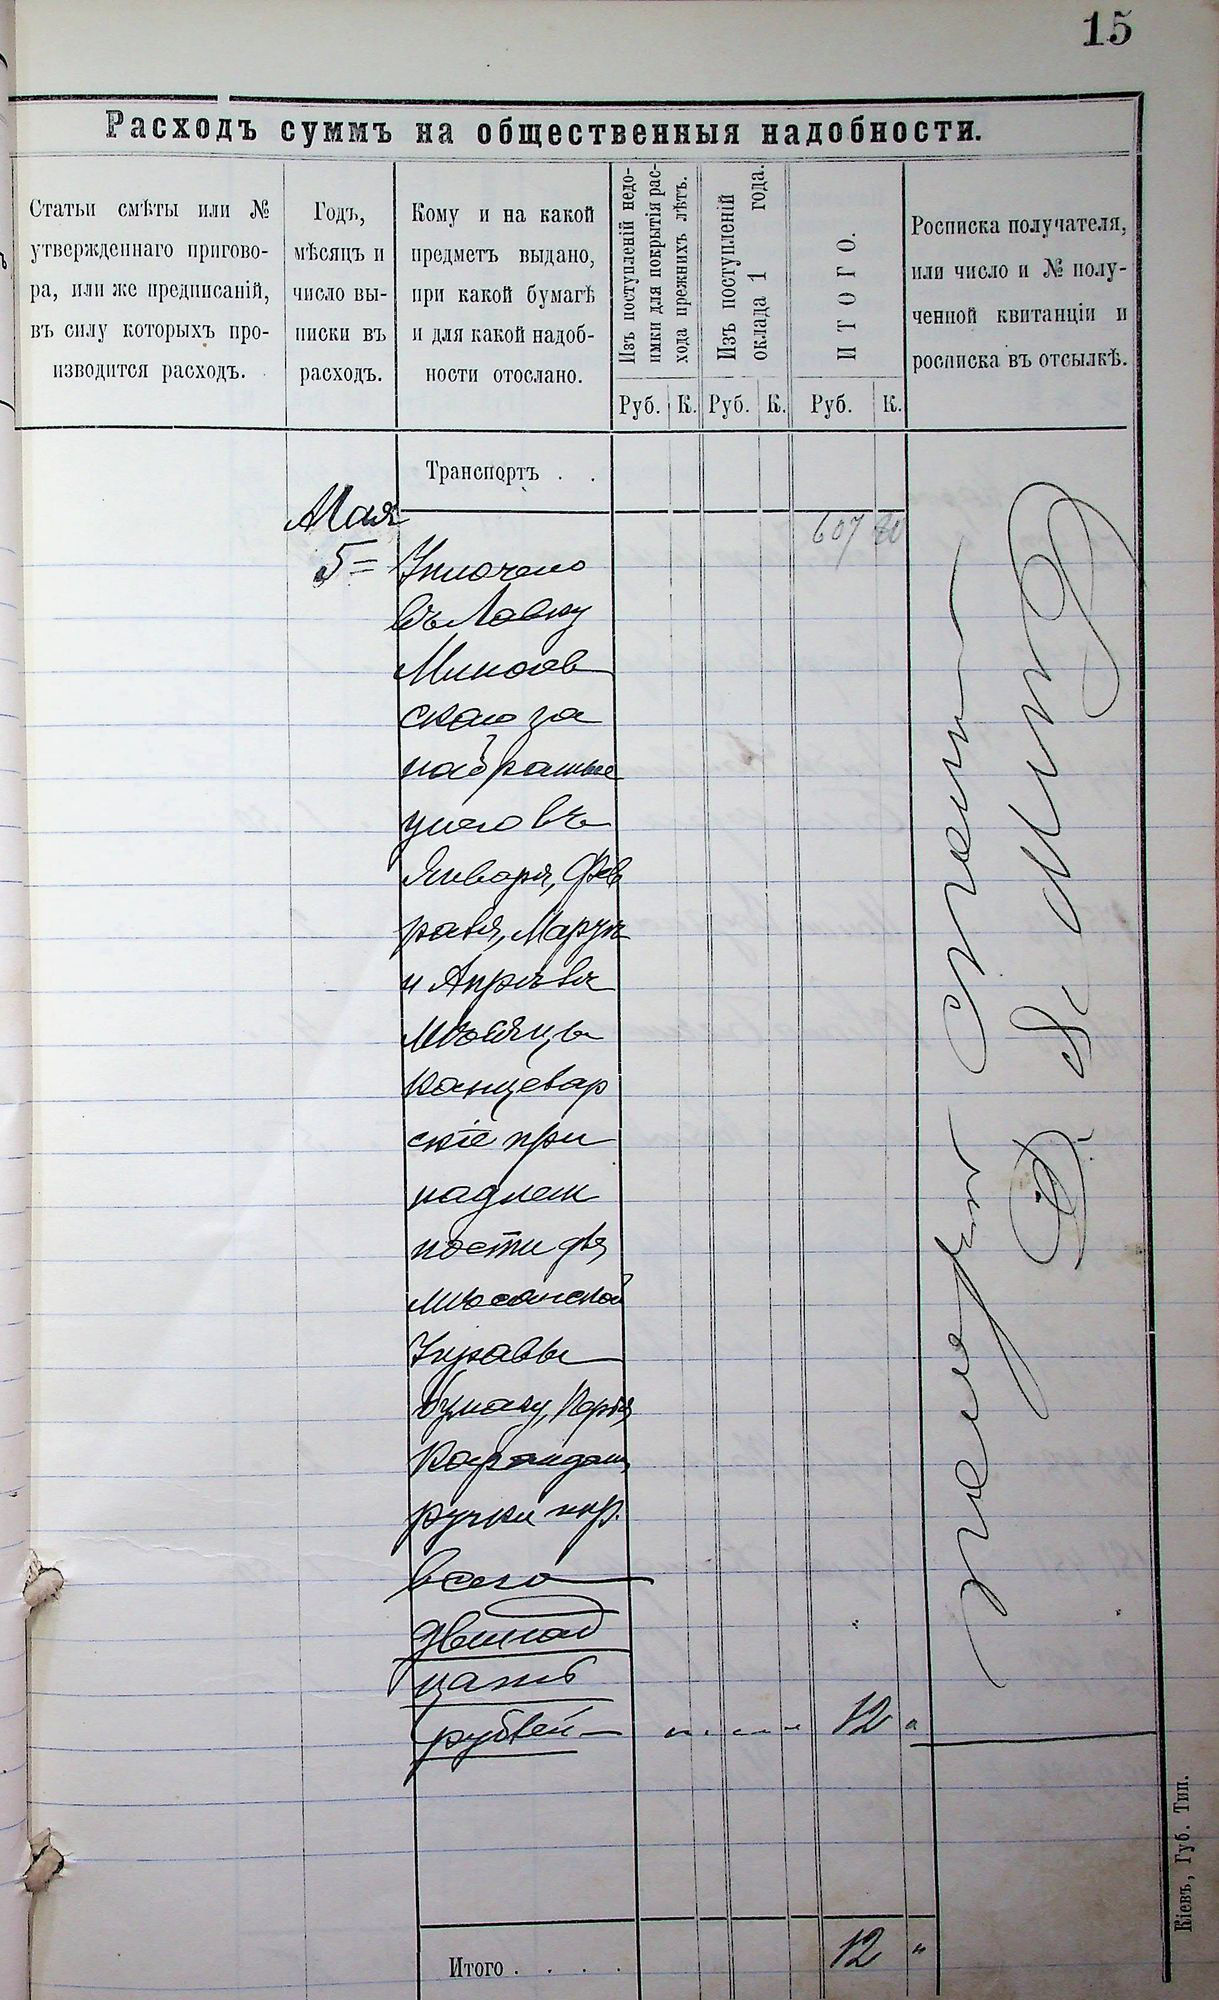 15
Расходъ суммъ на общественныя надобности.
Статьи смѣты или №
утвержденнаго пригово-
ра, или же предписаній,
въ силу которыхъ про-
изводится расходъ.
Годъ,
мѣсяцъ и
число вы-
писки въ
расходъ.
Кому и на какой
предметъ выдано,
при какой бумагѣ
и для какой надоб-
ности отослано.
Изъ поступленій недо-
имки для покрытія рас-
хода прежнихъ лѣтъ.
Изъ поступленій
оклада 1 года.
ИТОГО.
Росписка получателя,
или число и № полу-
ченной квитанціи и
росписка въ отсылкѣ.
Руб. К. Руб. К. Руб. К.
Транспортъ . .
Мая
607
5 = Уплочено
въ Лавку
за
набранные
Января, Фев
раля, Мартѣ
и Апрѣлѣ
мѣсяцѣ
Канцеляр
скіе при
надлеж
ности для
мѣщанской
Управы
бумагу, Перья
Карандаш,
ручки
всего
двенад
цать
рублей — 12 "
Итого . . . . 12 "
Кіевъ, Губ. Тип.